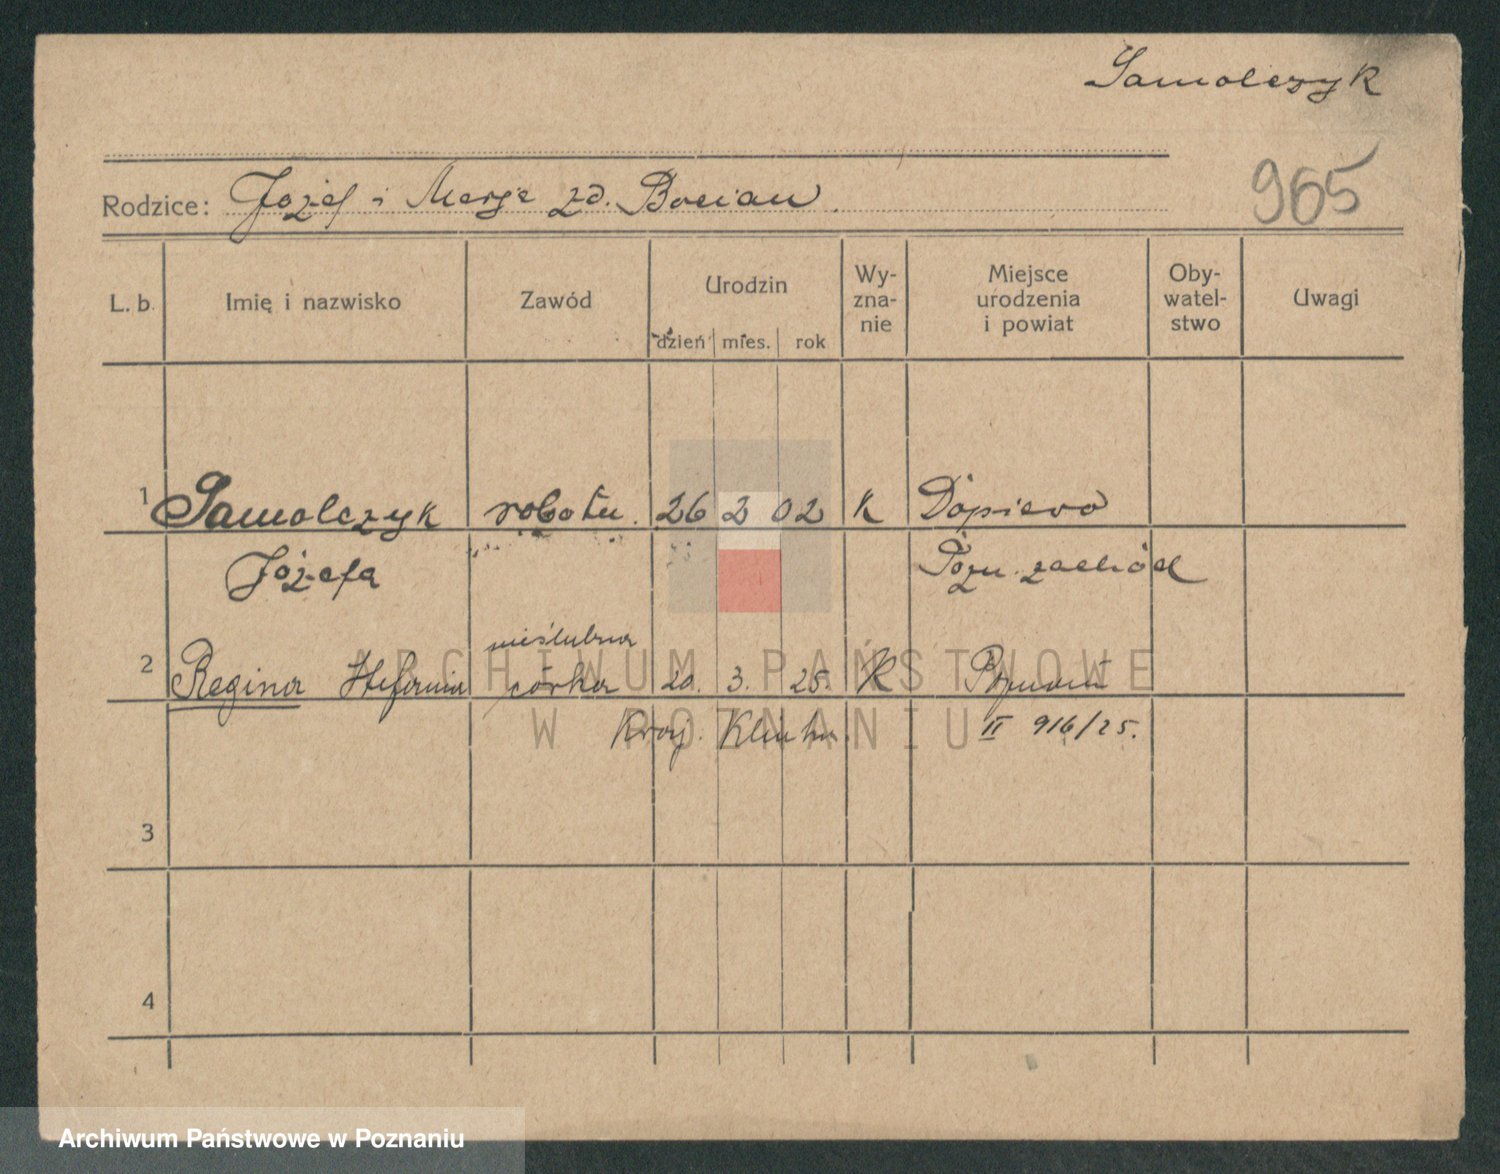 Samolczyk
965
Rodzice: Józef i Marja zd. Bocian
L. b. Imię i nazwisko Zawód Urodzin Wy-zna-nie Miejsce urodzenia i powiat Oby-watel-stwo Uwagi
dzień mies. rok
1 Samolczyk robotn. 26 2 02 K Dopiewo
Józefa Pozn. zachód
nieślubna
2 Regina Stefania córka 20. 3. 25. K Poznań
II 916/25.
3
4
ARCHIWUM PAŃSTWOWE
W POZNANIU
Archiwum Państwowe w Poznaniu